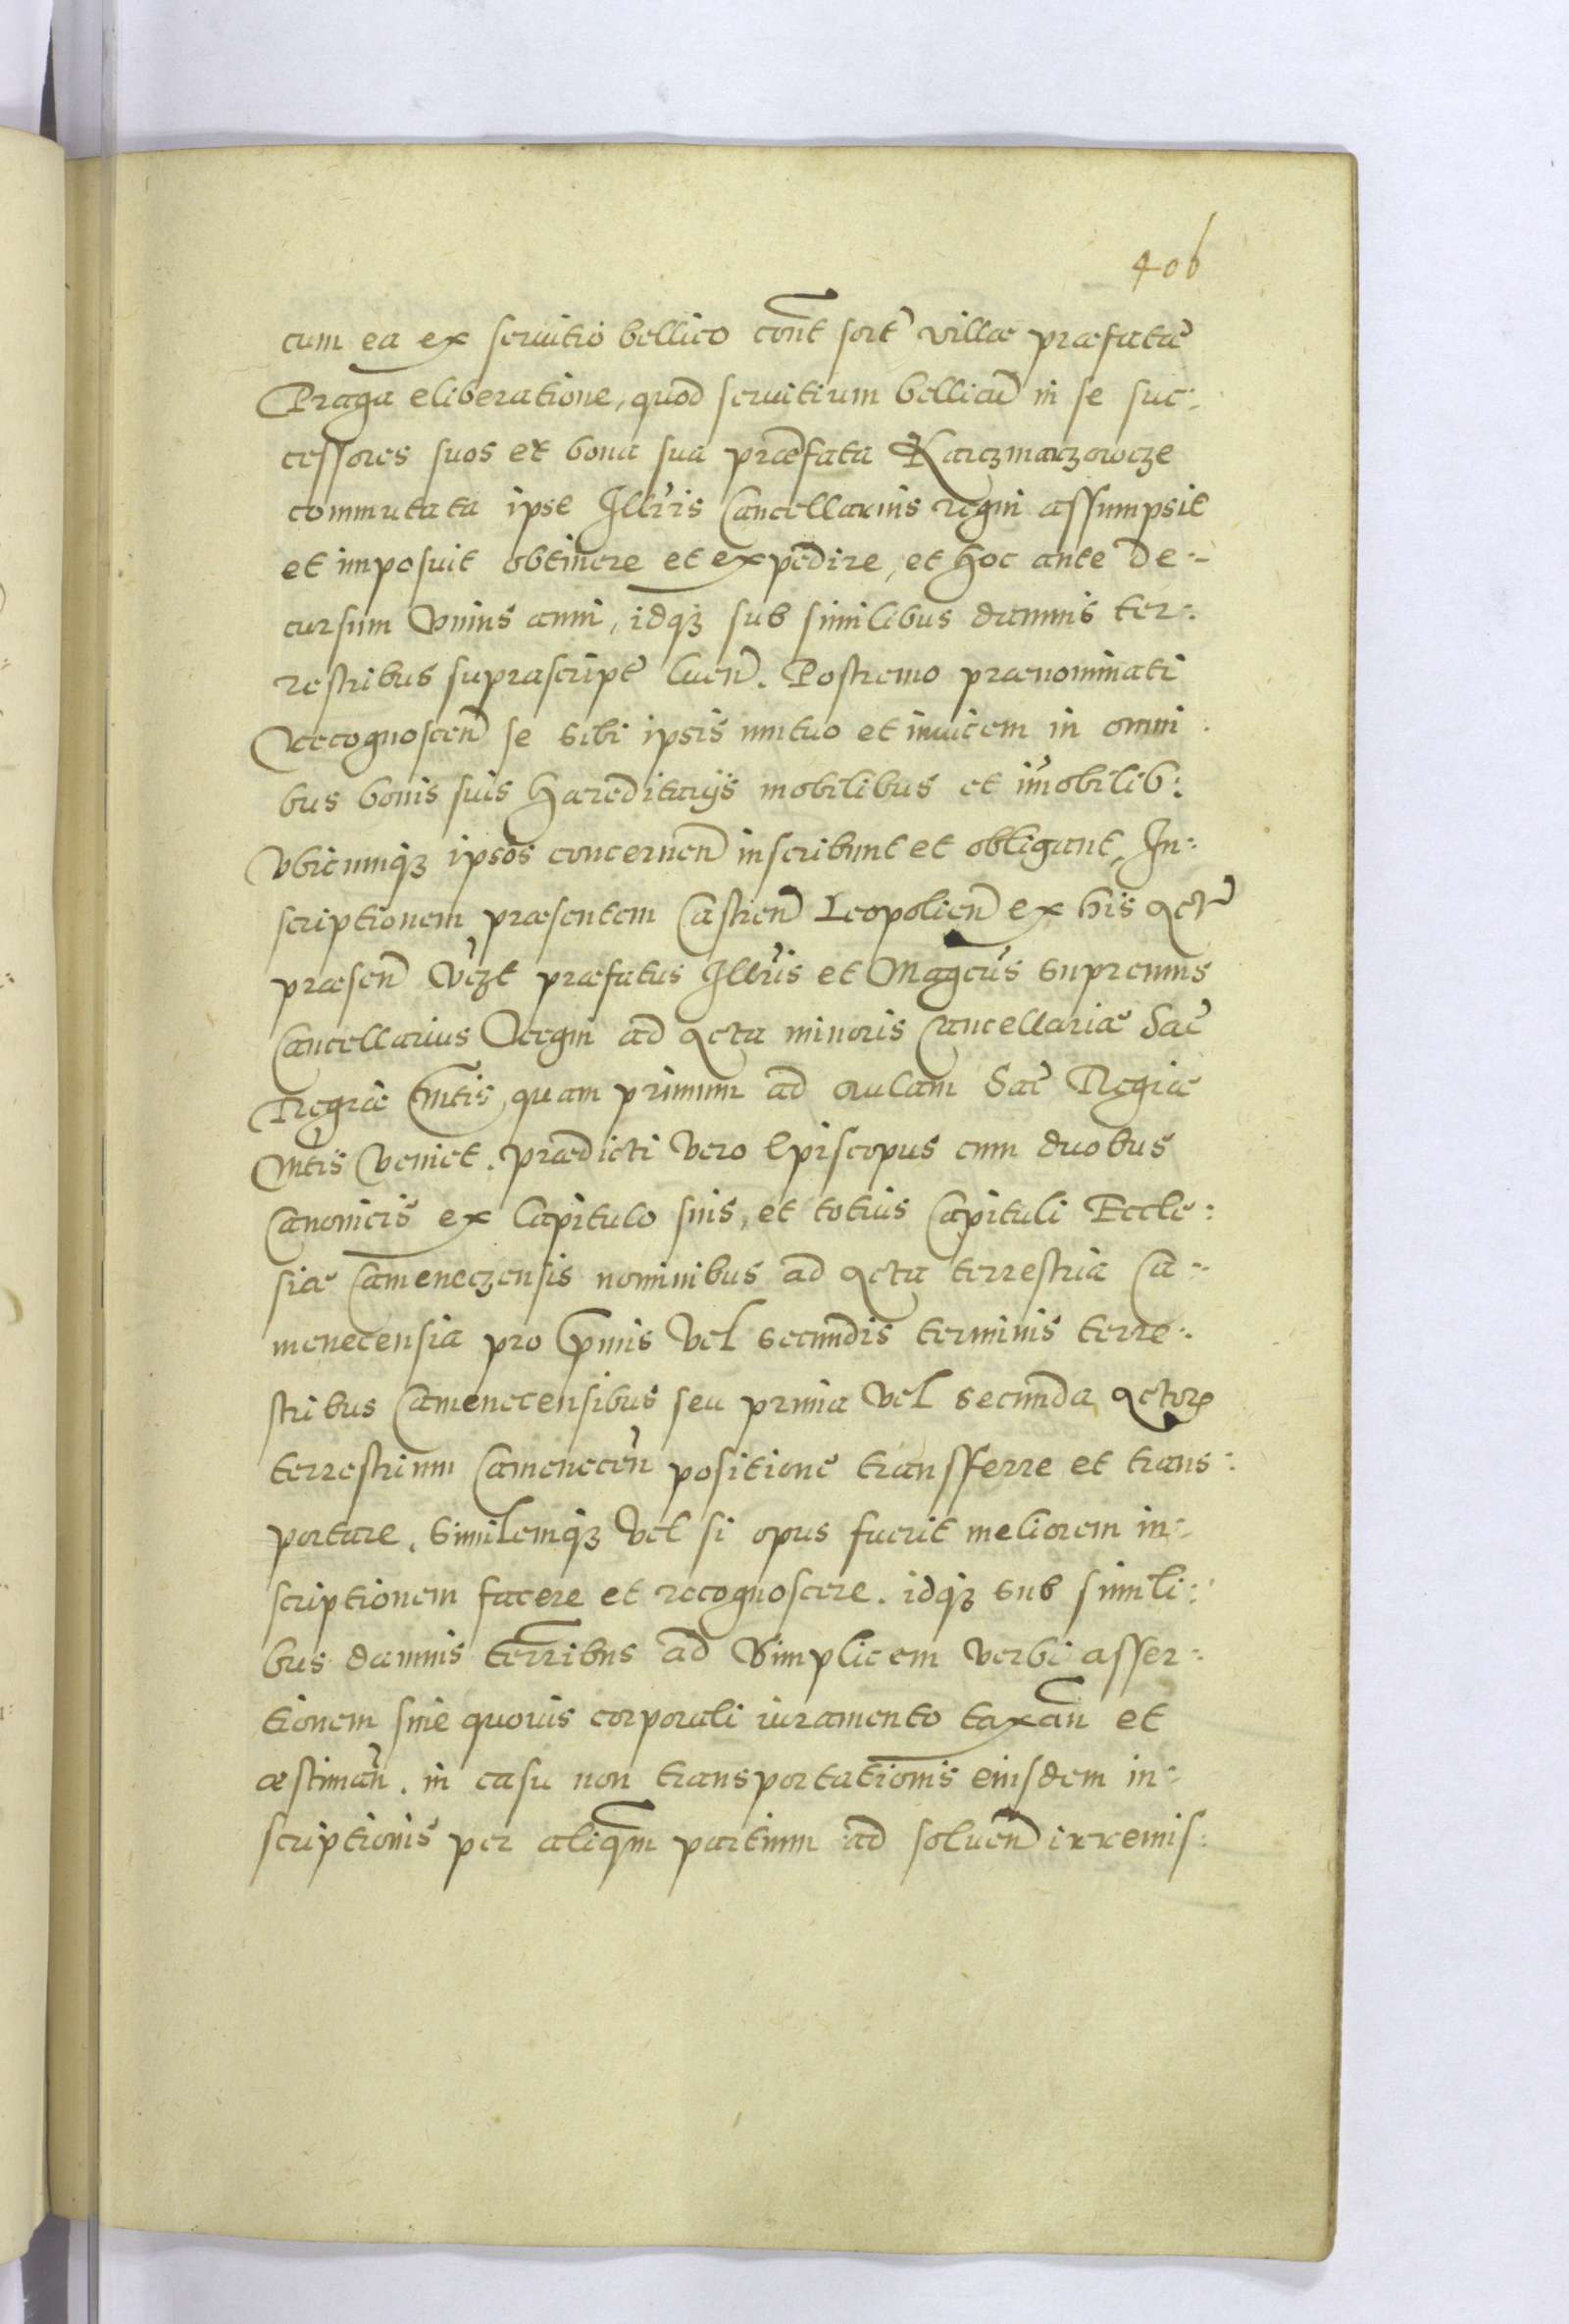 406
cum ea ex seruitio bellico cont̃ sort̃ villæ præfatæ
Praga eliberatione, quod seruitium bellicũ in se suc:
cessores suos et bona sua præfata Karczmarzowcze
commutata ipse Illr̃is Cancellarius regni assumpsit
et imposuit obtinere et expedire, et hoc ante de:
cursum vnius anni, idq₃ sub similibus damnis ter:
restribus suprascript̃ luen̄. Postremo prænominati
Recognoscen̄ se sibi ipsis mutuo et inuicem in omni
bus bonis suis hæreditarijs mobilibus et im̃obilib:
vbicumq₃ ipsos concernen̄ inscribunt et obligant, In:
scriptionem præsentem Castren̄ Leopolien̄ ex his Act̃
præsen̄ vĩzt præfatus Illr̃is et Magcũs supremus
Cancellarius Regni ad Acta minoris Cancellariæ Sac̃
Regiæ Mtis̃, quam primum ad aulam Sac̃ Regiæ
Mtis̃ veniet. prædicti vero Episcopus cum duobus
Canonicis ex Capitulo suis, et totius Capituli Eccle:
siæ Cameneczensis nominibus ad Acta terrestria Ca:
menecensia pro p̃mis vel secundis terminis terre:
stribus Camenecensibus seu prima vel secunda Actorꝝ
terrestrium Camenecen̄ positione transferre et trans:
portare, similemq₃ vel si opus fuerit meliorem in:
scriptionem facere et recognoscere. idq₃ sub simili:
bus damnis terr̃ibus ad simplicem verbi asser:
tionem sine quouis corporali iuramento taxañ et
æstimañ. in casu non transportationis eiusdem in:
scriptionis per aliq̃m partium ad soluen̄ irremis: